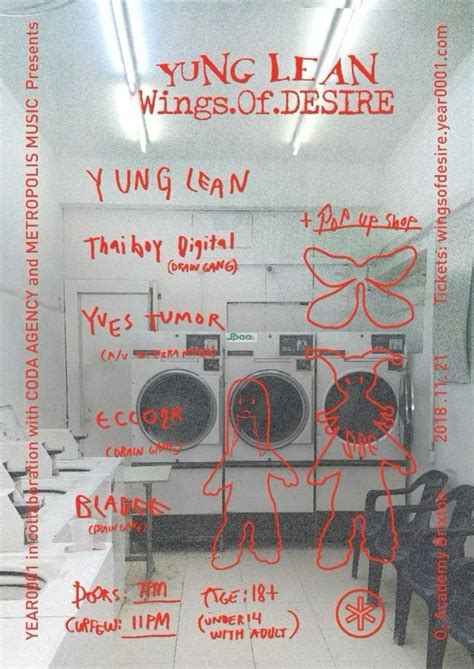 YUNG LEAN
Wings.Of.DESIRE
YUNG LEAN
+ POP UP SHOP
Thaiboy Digital
(DRAIN GANG)
YVES TUMOR
(A/V
ECCO2K
(DRAIN GANG)
BLADEE
(DRAIN GANG)
DOORS: 7PM
CURFEW: 11PM
AGE: 18+
(UNDER 14
WITH ADULT)
YEAR0001 in collaboration with CODA AGENCY and METROPOLIS MUSIC Presents
O₂ Academy Brixton 2018.11.21 Tickets: wingsofdesire.year0001.com